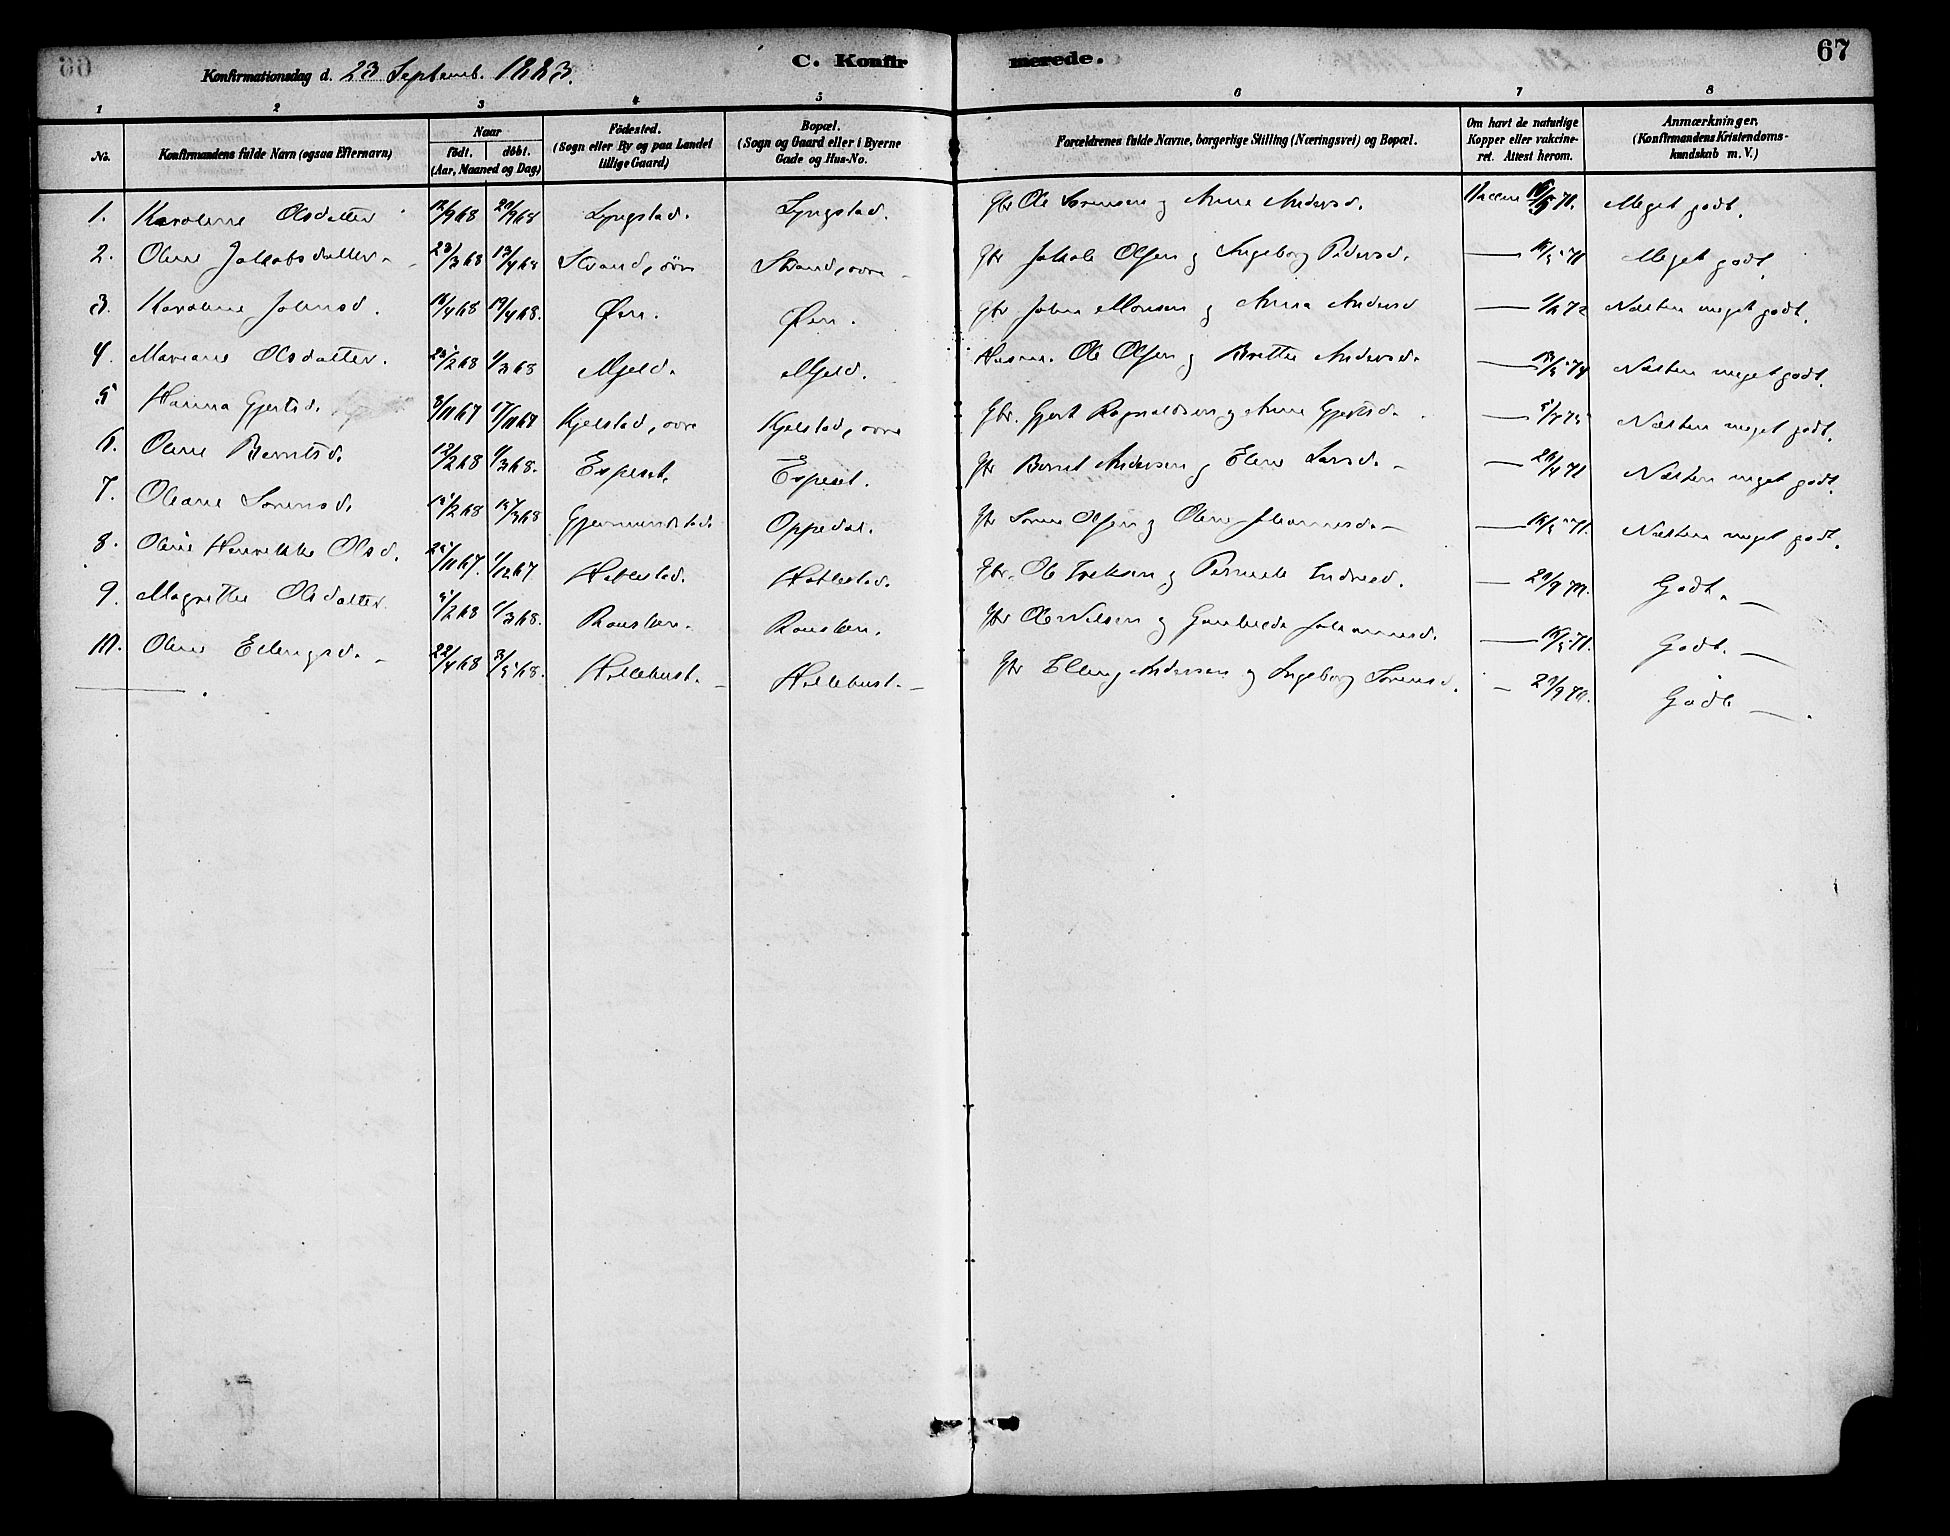 Konfirmationsdag d. 23 Septemb. 1883.
C. Konfirmerede.
67
1 2 3 4 5 6 7 8
No.
Konfirmandens fulde Navn (ogsaa Efternavn)
Naar
født. døbt.
(Aar, Maaned og Dag)
Fødested.
(Sogn eller By og paa Landet
tillige Gaard)
Bopæl.
(Sogn og Gaard eller i Byerne
Gade og Hus-No.
Forældrenes fulde Navne, borgerlige Stilling (Næringsvei) og Bopæl.
Om havt de naturlige
Kopper eller vakcine-
ret. Attest herom.
Anmærkninger,
(Konfirmandens Kristendoms-
kundskab m. V.)
1. Karoline Olsdatter 12/9 68 20/9 68 Lyngstad. Lyngstad. Gbr Ole Sørensen og Anne Andersd. Vaccine 71. Meget godt.
2. Oline Jakobsdatter 23/3 68 13/4 68 Strand, øvre Strand, øvre Gbr Jakob Olsen og Ingeborg Pedersd. — 71 Meget godt.
3. Karoline Johnsd. 18/4 68 19/4 68. Øen. Øen. Gbr John Monsen og Anna Andersd — 72 Næsten meget godt.
4. Mariane Olsdatter. 25/2 68 1/3 68 Mjeld. Mjeld. Husm. Ole Olsen og Brette Andersd. — 74 Næsten meget godt.
5 Hanna Gjertsd. 8/11 67 17/11 67 Kjelstad, øvre Kjelstad, øvre Gbr. Gjert Ragnaldsen og Anne Gjertsd. — Næsten meget godt.
6. Oline Berntsd. 12/2 68 1/3 68. Espeset. Espeset. Gbr Bernt Andersen og Elen Larsd. — 71 Næsten meget godt.
7. Oleane Sørensd. 15/2 68 15/3 68 Gjermundstad Oppedal. Gbr Søren Olsen og Oline Johannesd. — 71. Næsten meget godt.
8. Oline Henrikke Olsd. 25/11 67. 1/12 67 Hatlestad. Hatlestad. Gbr. Ole Iveksen og Pernele Indresd. — 29/9 70. Godt. —
9. Magrethe Olsdatter 5/2 68 1/3 68. Rousten. Rousten. Gbr Ole Nilsen og Gunhilda Johannesd. — 71. Godt. —
10. Oline Ellingsd. 22/4 68 3/5 68. Hellebust. — Hellebust. — Gbr Elling Andersen og Ingeborg Sørensd. — 29/9 70. Godt —